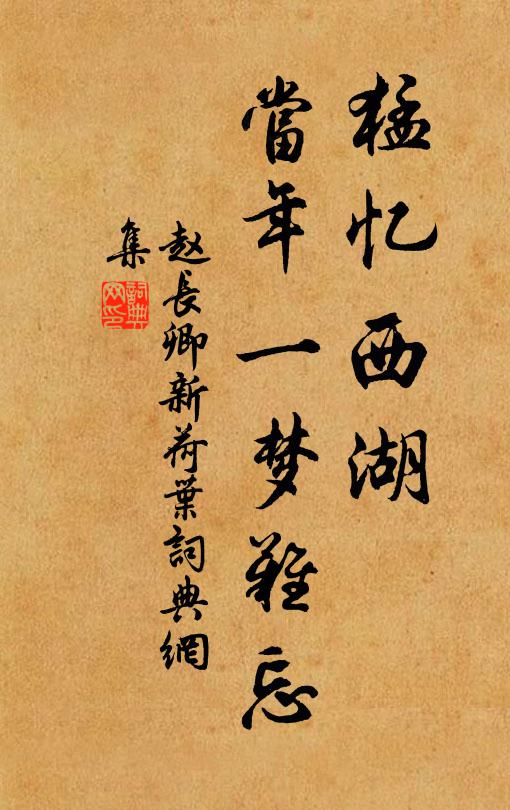 猛忆西湖
當年一梦難忘
赵長卿新荷葉詞典網
集
詞典
网印